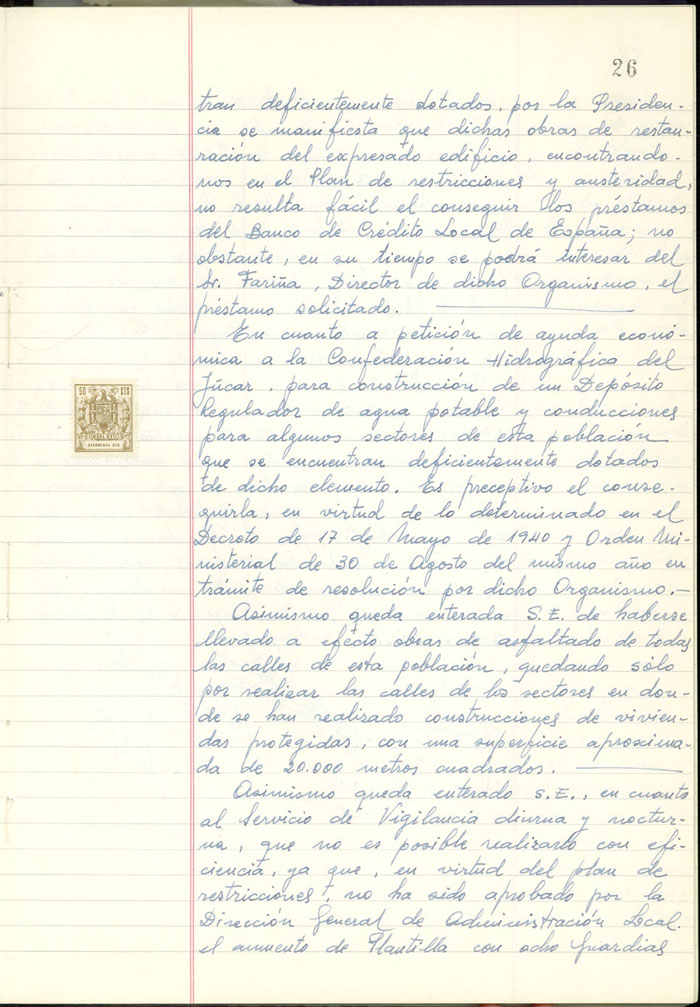 26
tran deficientemente dotados, por la Presiden-
cia se manifiesta que dichas obras de restau-
ración del expresado edificio, encontrando-
nos en el Plan de restricciones y austeridad,
no resulta fácil el conseguir los préstamos
del Banco de Crédito Local de España; no
obstante, en su tiempo se podrá interesar del
Sr. Fariña, Director de dicho Organismo, el
préstamo solicitado.
En cuanto a petición de ayuda econó-
mica a la Confederación Hidrográfica del
Júcar, para construcción de un Depósito
Regulador de agua potable y conducciones
para algunos sectores de esta población
que se encuentran deficientemente dotados
de dicho elemento. Es preceptivo el conse-
guirla, en virtud de lo determinado en el
Decreto de 17 de Mayo de 1940 y Orden Mi-
nisterial de 30 de Agosto del mismo año en
trámite de resolución por dicho Organismo.-
Asimismo queda enterada S.E. de haberse
llevado a efecto obras de asfaltado de todas
las calles de esta población, quedando sólo
por realizar las calles de los sectores en don-
de se han realizado construcciones de vivien-
das protegidas, con una superficie aproxima-
da de 20.000 metros cuadrados.
Asimismo queda enterado S.E., en cuanto
al Servicio de Vigilancia diurna y noctur-
na, que no es posible realizarlo con efi-
ciencia, ya que, en virtud del plan de
restricciones, no ha sido aprobado por la
Dirección General de Administración Local.
el aumento de Plantilla con ocho Guardias
50 CTS